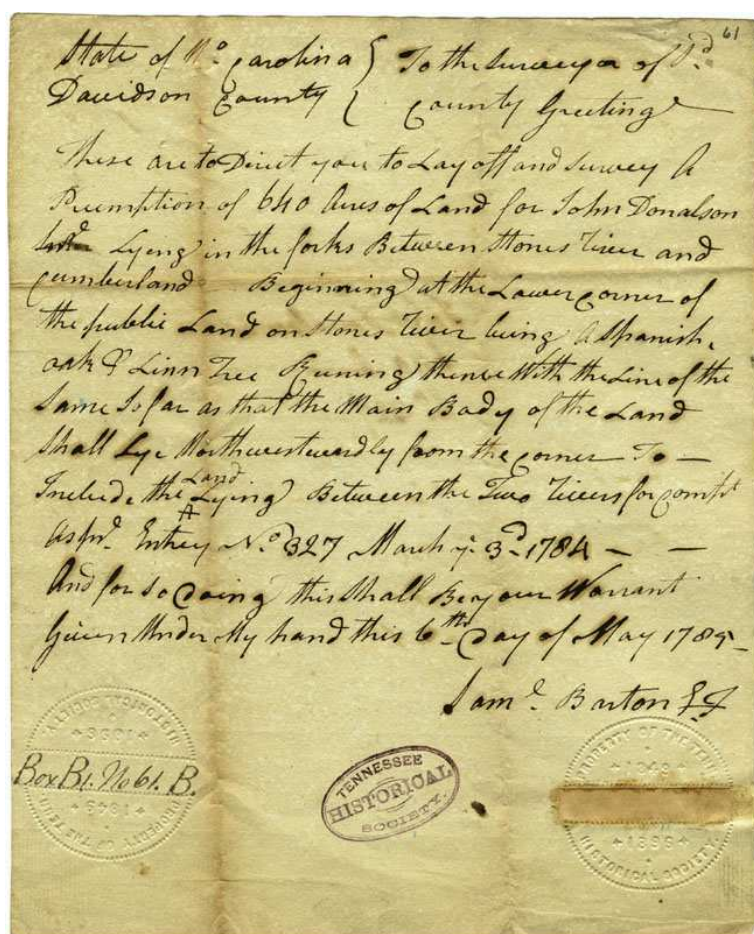 61
State of No. Carolina { To the Surveyor of Sd.
Davidson County { County Greeting
These are to Direct you to Lay off and Survey A
Preemption of 640 Acres of Land for John Donalson
Lyeng in the forks Between Stones River and
Cumberland Beginning at the Lower corner of
the public Land on Stones River being A Spanish
oak & Linn Tree Runing thence With the Line of the
Same So far as that the Main Body of the Land
Shall Lye Northwestwardly from the corner To —
Include the Land Lying Between the Two Rivers for compt
As pr. Entrey No. 327 March ye 3d. 1784 — —
And for So Doing this Shall Be your Warrant
Given Under My hand this 6th Day of May 1784
Saml. Barton
HISTORICAL SOCIETY
Box B1. No 61. B.
1849
PROPERTY OF THE TENN
TENNESSEE
HISTORICAL
SOCIETY.
PROPERTY OF THE TENN
1849
HISTORICAL SOCIETY